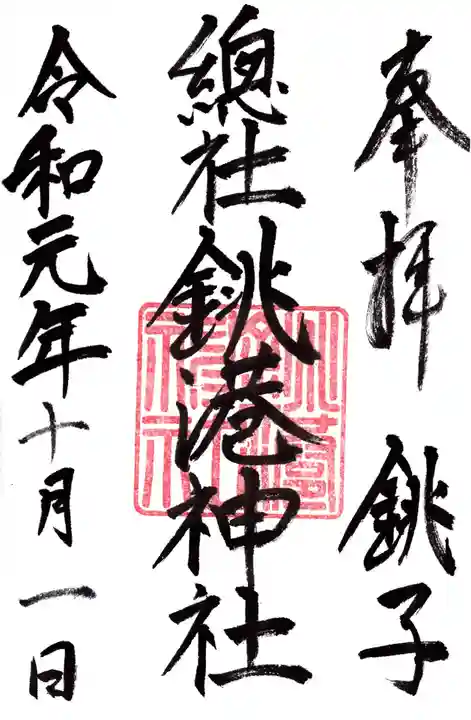 奉拝 銚子
總社銚港神社
令和元年十月一日